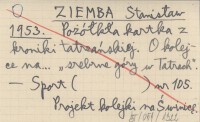 O ZIEMBA Stanisław
1953. Pożółkła kartka z
kroniki tatrzańskiej. O kolej-
ce na... „srebrne góry w Tatrach".
— Sport ( ) nr 105.
Projekt kolejki na Świnicę.